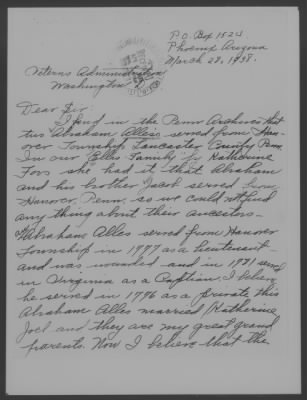 P.O. Box 1524
Phoenix Arizona
March 28, 1938.
Veterns Administration
Washington
Dear Sir:
I find in the Penn Archives that
two Abraham Alles's served from Han-
over Township Lancaster County Penn.
In our Family by Katherine
Fors she had it that Abraham
and his brother Jacob served from
Hanover Penn. so we could not find
any thing about their ancestors-
Abraham Alles served from Hanover
Township in 1777 as a lieutenant
and was wounded and in 1781 served
in Virginia as a Caption. I believe
he served in 1776 as a private this
Abraham Alles married Katherine
Joel and they are my great grand
parents. Now I believe that the